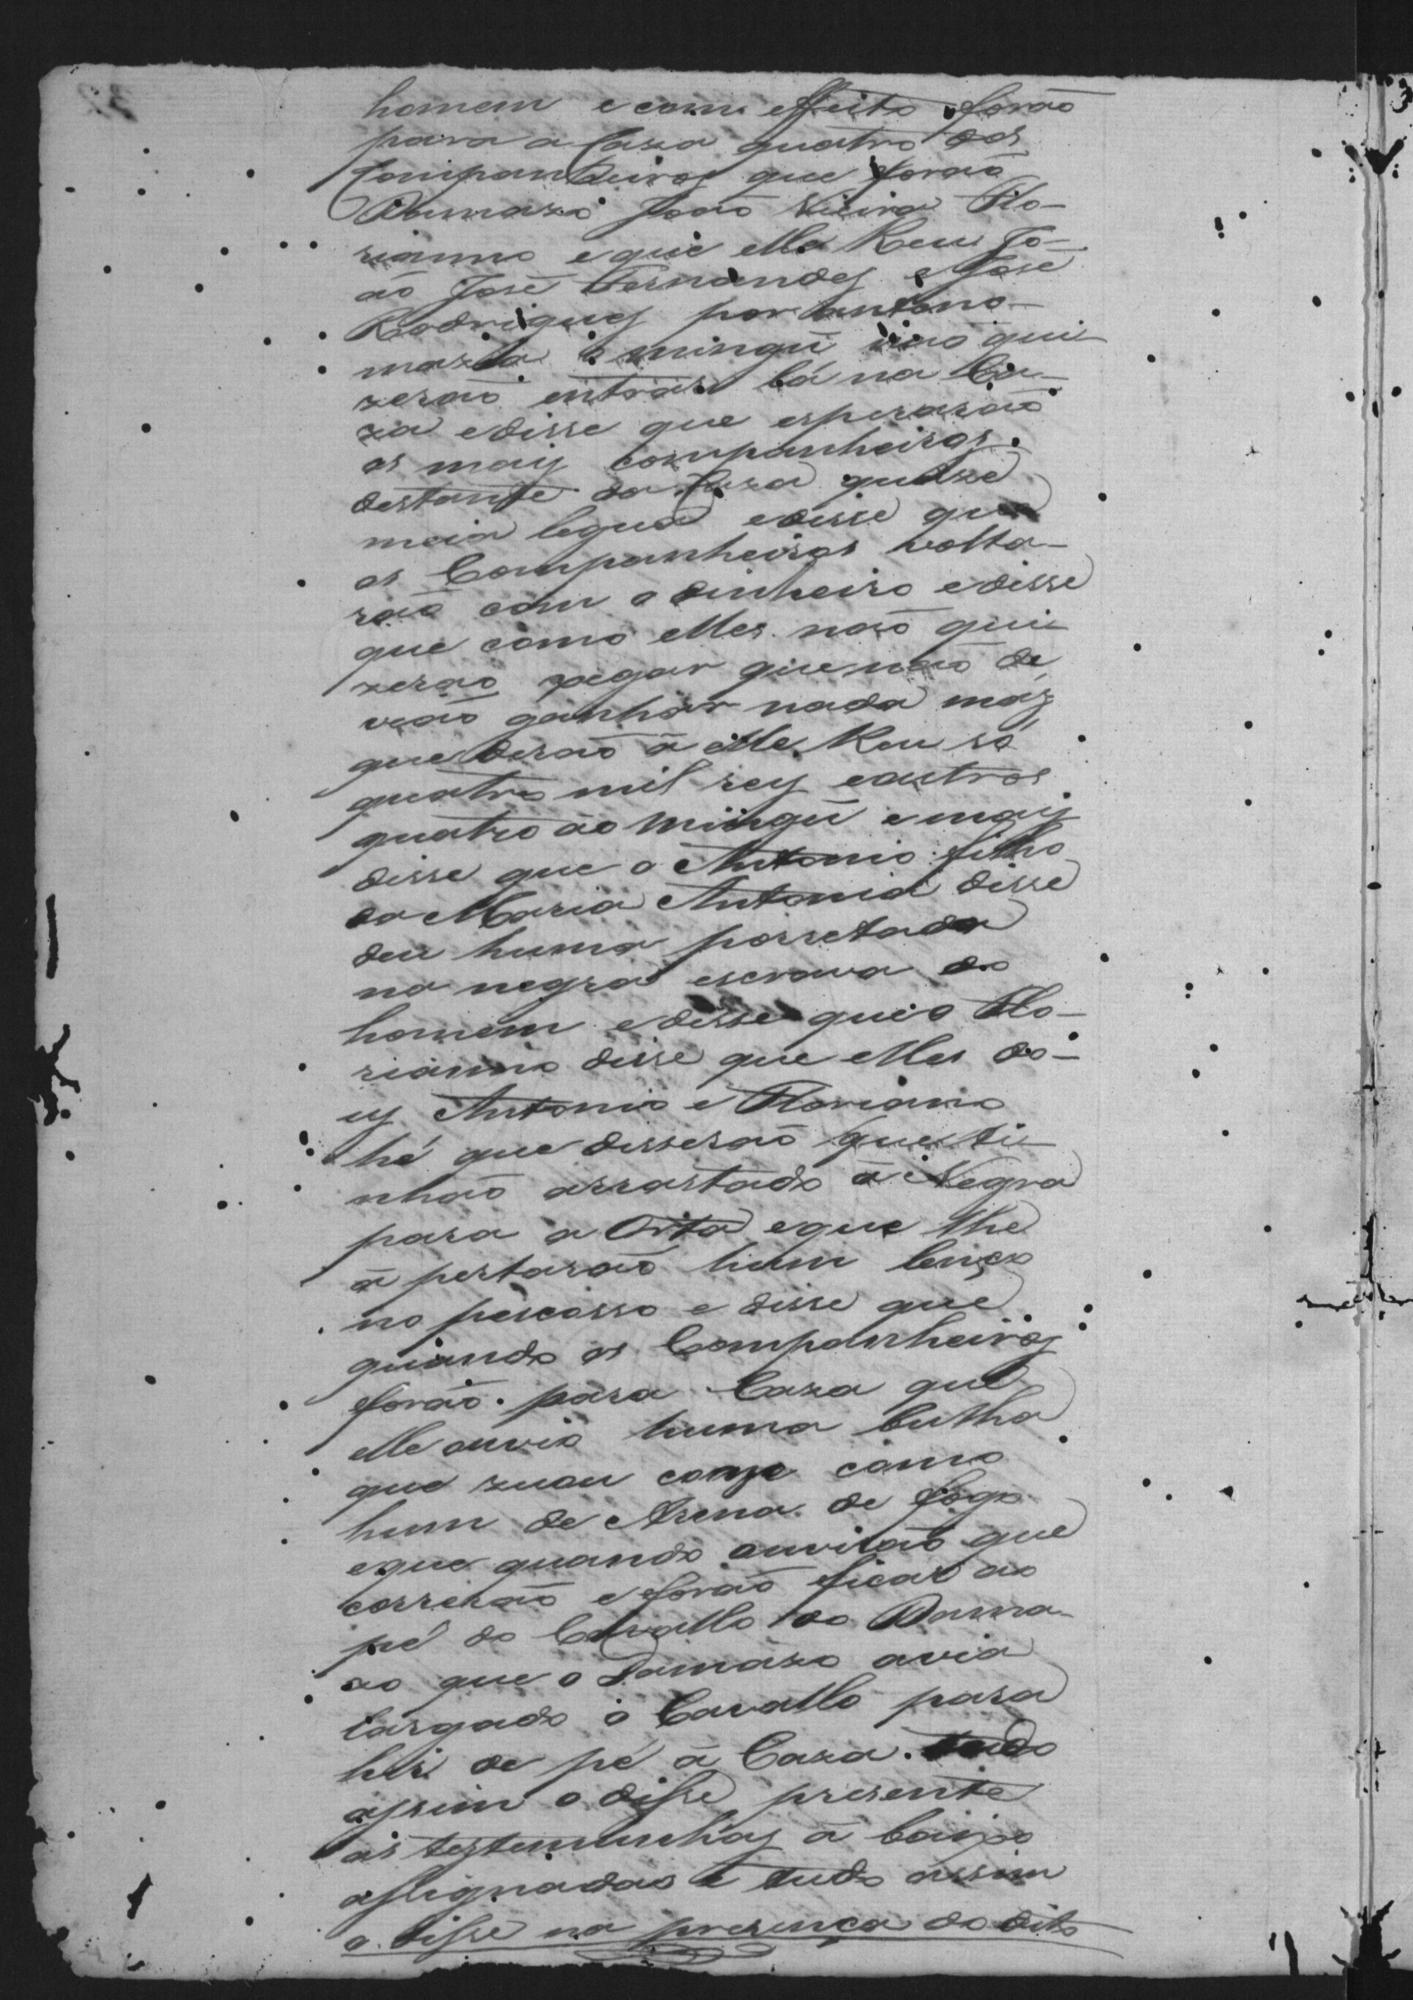 homem e com effeito forão
para a Caza quatro dos
Companheiros que forão
Damazo João Vieira Flo-
rianno e que elle Reu Jo-
ão José Fernandes e José
Rodrigues por antono-
mazia o mingú não qui-
zerão entrar lá na Ca-
za e disse que esperarão
os mais companheiros
destante da Caza quaze
meia legua e disse que
os Companheiros volta-
rão com o dinheiro e disse
que como elles não qui
zerão pegar que não de
vião ganhar nada mas
que derão á elle Reu só
quatro mil reis e outros
quatro ao mingú e mais
disse que o Antonio filho
da Maria Antonia disse
deu huma porretada
na negra escrava do
homem e disse que o Flo-
rianno disse que elles do-
is Antonio e Floriano
hé que disserão que ti-
nhão arrastado a Negra
para a Orta e que lhe
á pertarão hum lenço
no pescosso e disse que
quando os Companheiros
forão para Caza que
elle ouvio huma bulha
que zuou como
hum de Arma de fogo
e que quando ouvirão que
correrão e forão ficar ao
pé do Cavallo do Dama-
zo que o Damazo avia
largado o Cavallo para
hir de pé á Caza tudo
assim o disse presente
as testemunhas á baixo
assignadas e tudo assim
o disse na presença do dito